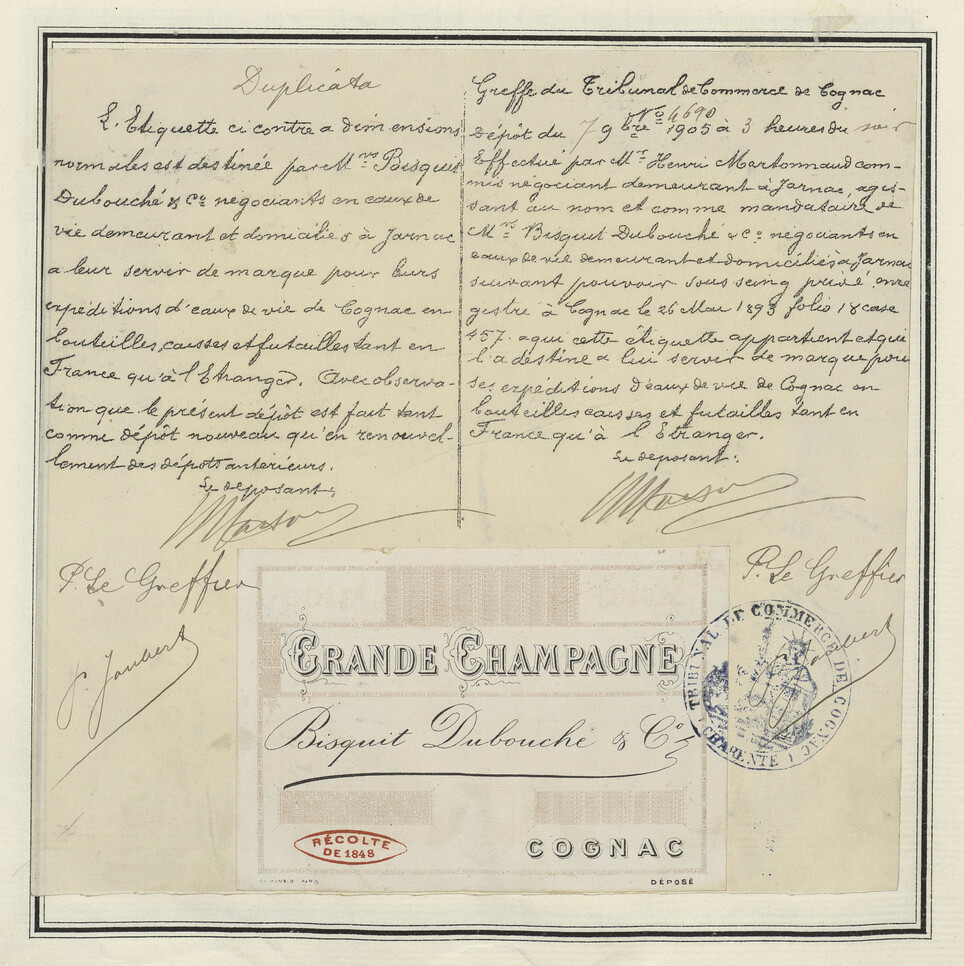 Duplicâta
L'Etiquette ci contre a dimensions
normales est destinée par Mrs Bisquit
Dubouché & Co négociants en eaux de
vie demeurant et domiciliés à Jarnac
a leur servir de marque pour leurs
expéditions d'eaux de vie de Cognac en
bouteilles, caisses et futailles tant en
France qu'à l'Etranger. Avec observa-
tion que le présent dépôt est fait tant
comme dépôt nouveau qu'en renouvel-
lement des dépôts antérieurs.
Le deposant:
P. Le Greffier
Joubert
Greffe du Tribunal de Commerce de Cognac
No 4690
Dépôt du 7 9bre 1905 à 3 heures du soir
Effectué par Mr Henri Martonnaud com-
mis négociant demeurant à Jarnac, agis-
sant au nom et comme mandataire de
Mrs Bisquit Dubouché & Co négociants en
eaux de vie demeurant et domiciliés à Jarnac
suivant pouvoir sous seing privé, enre
gistré à Cognac le 26 Mai 1893 folio 18 case
457. a qui cette étiquette appartient et qui
l'a destine a lui servir de marque pour
ses expéditions d'eaux de vie de Cognac en
bouteilles caisses et futailles tant en
France qu'à l'Etranger.
Le deposant:
P. Le Greffier
Joubert
TRIBUNAL DE COMMERCE DE COGNAC
(CHARENTE)
GRANDE CHAMPAGNE
Bisquit Dubouché & Co
RÉCOLTE
DE 1848
COGNAC
DÉPOSÉ